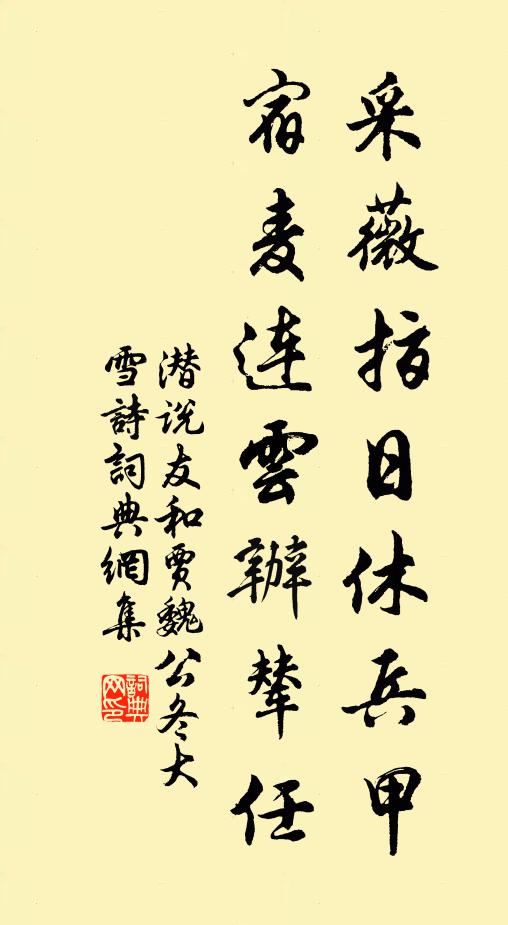 采薇指日休兵甲
宿麦連雲辦輦任
潜说友和贾魏公冬大
雪詩詞典網集
詞典网印